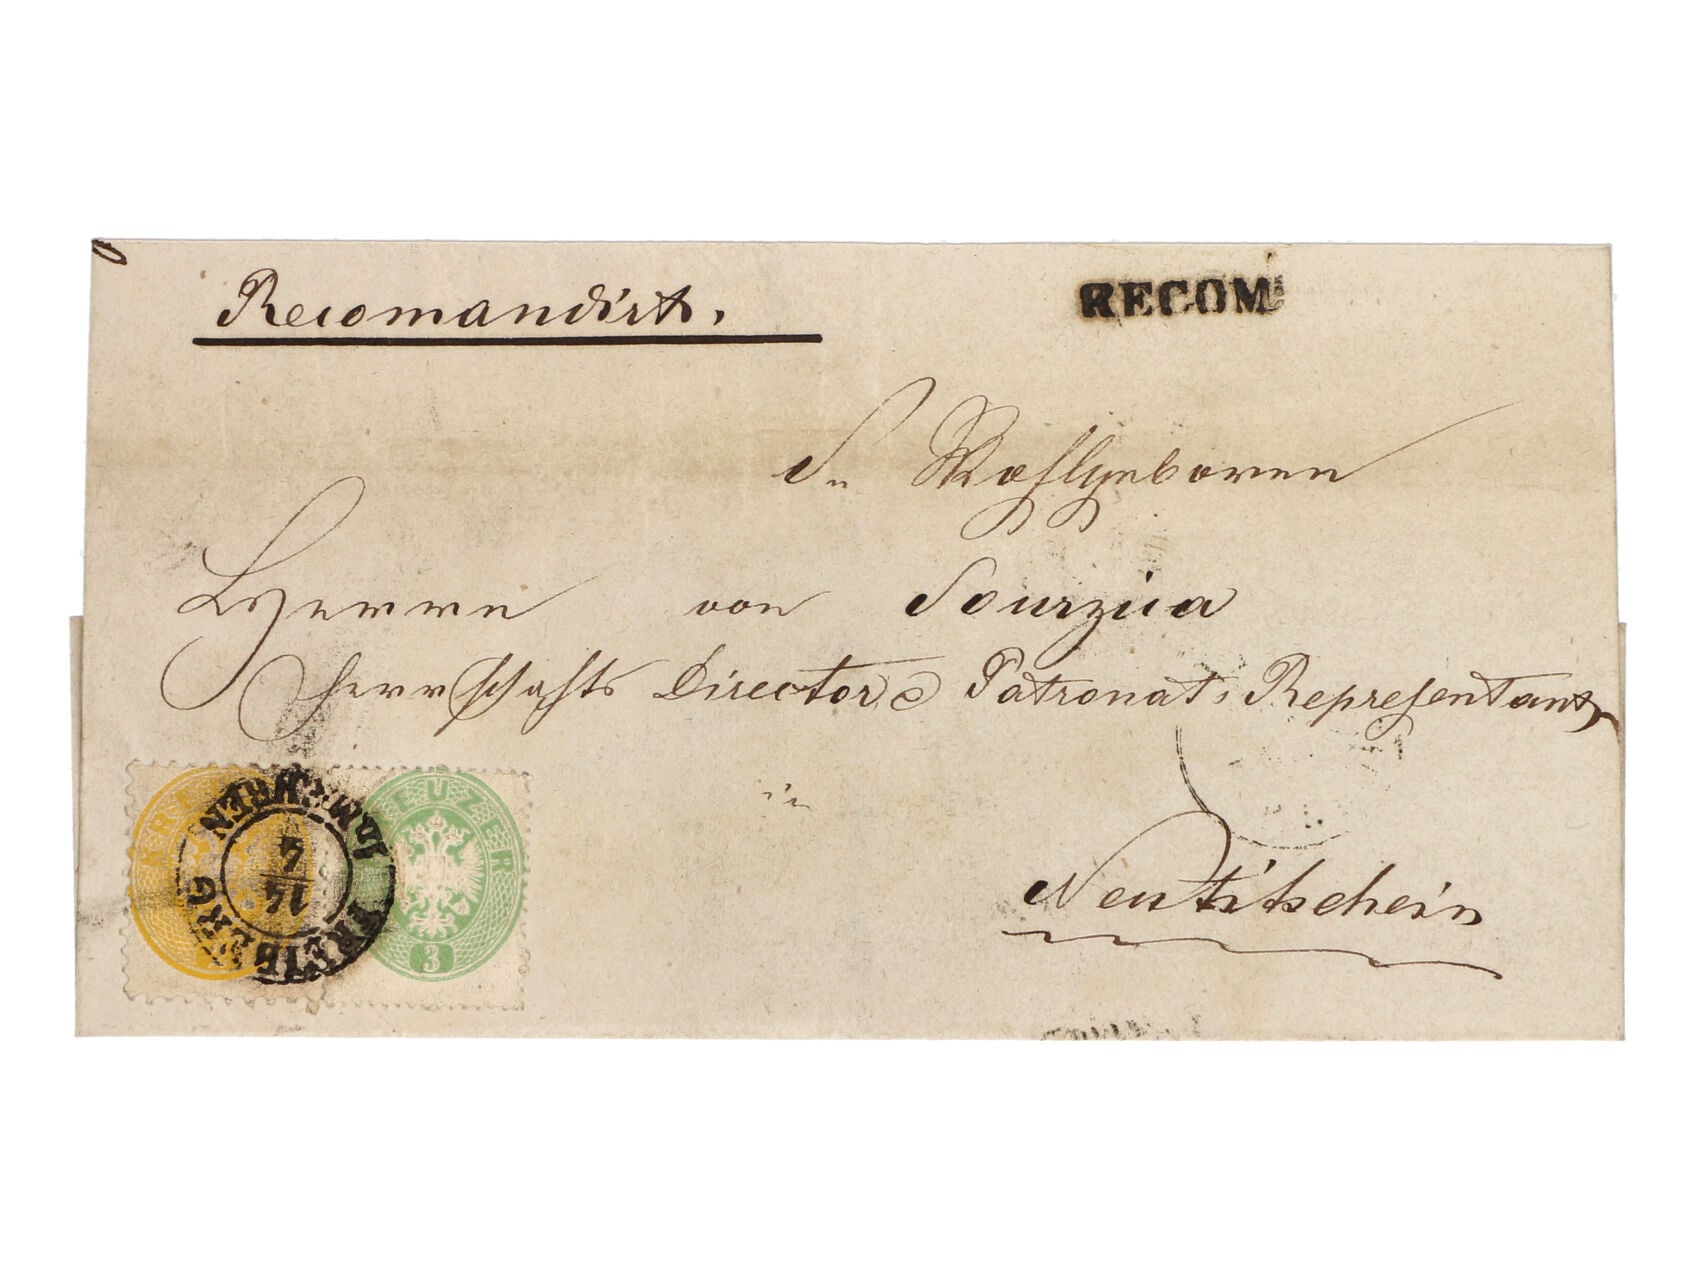 Recomandirt.
RECOM:
Sr Wohlgeboren
Herrn von Sourzua
Herrschafts Director & Patronats Representant
in
Neutitschein
FREIBERG IN MÆHREN
14
4
KREUZER
3